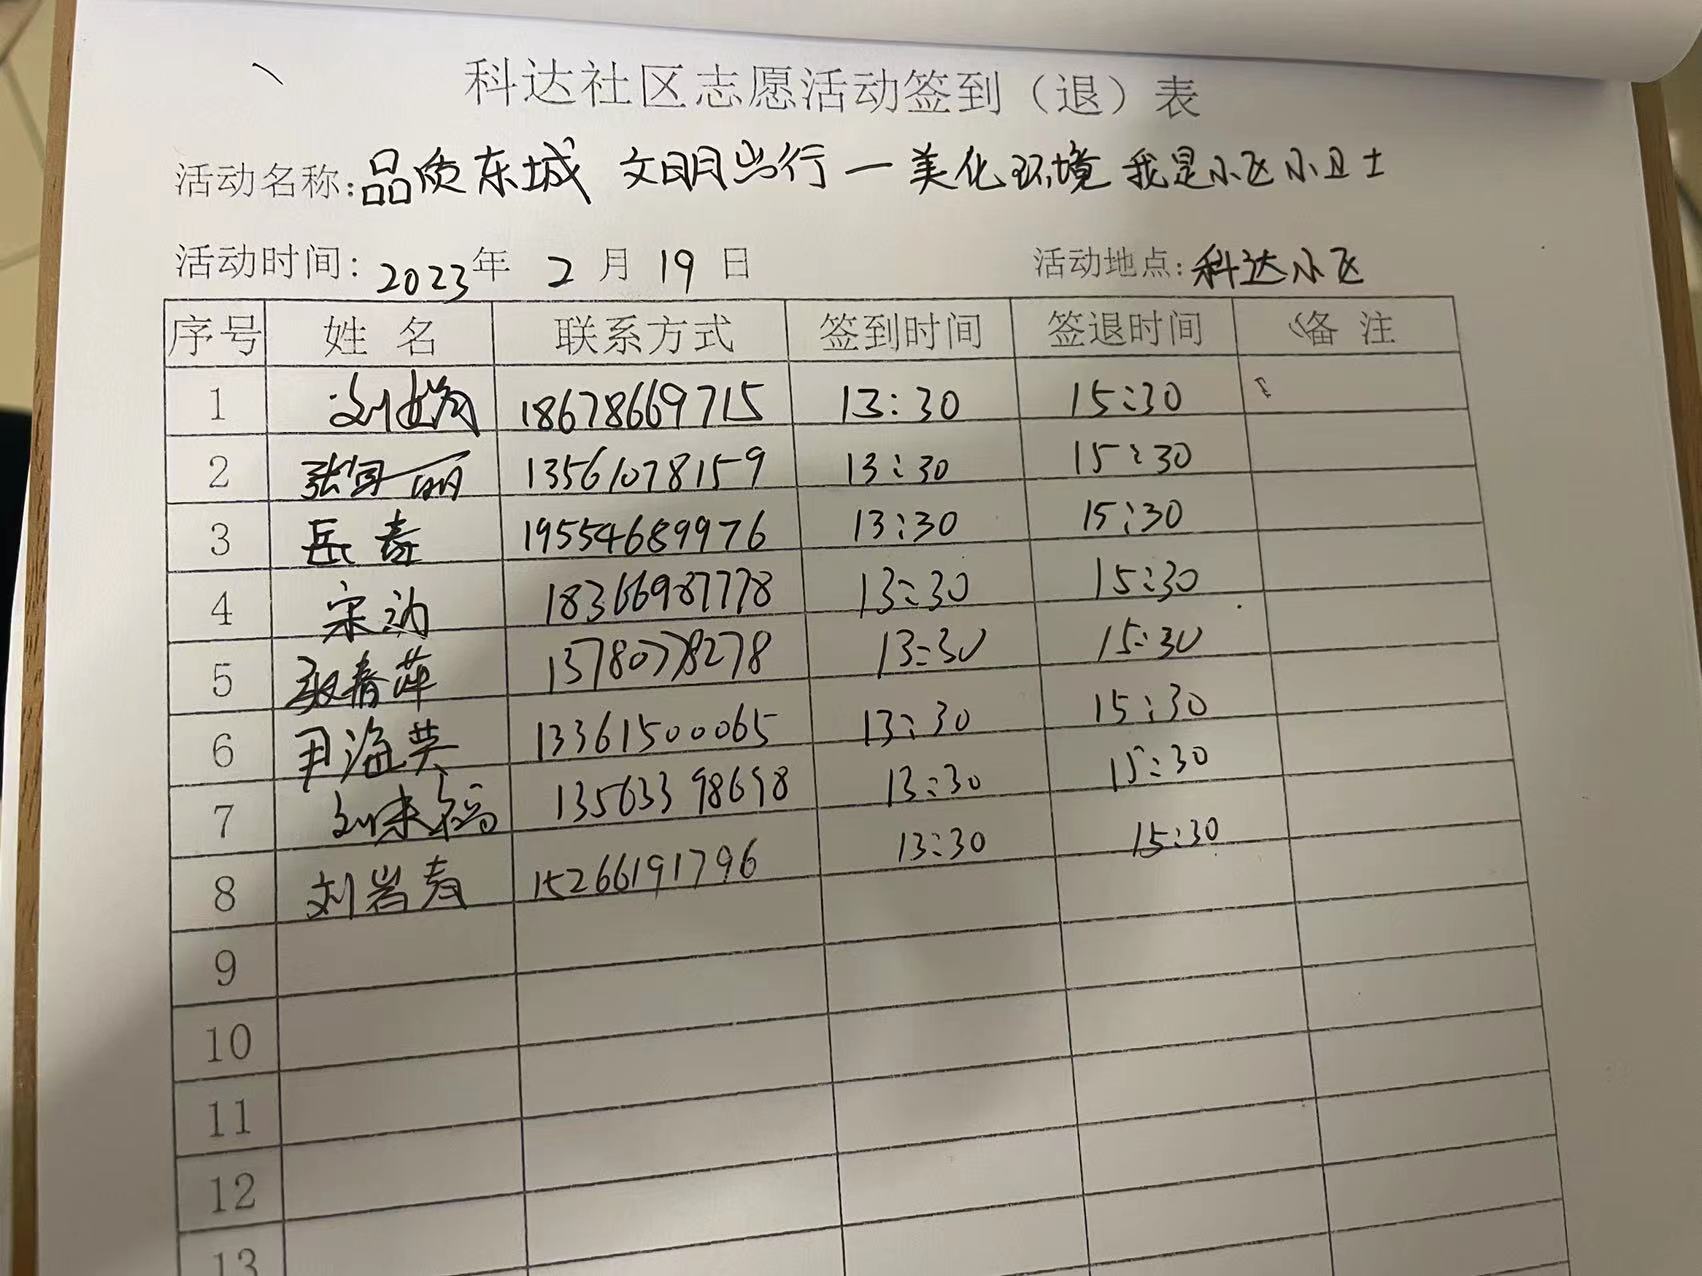 科达社区志愿活动签到（退）表
活动名称:品质东城 文明出行 — 美化环境 我是小区小卫士
活动时间: 2023年 2 月 19 日 活动地点:科达小区
序号 姓名 联系方式 签到时间 签退时间 备注
1 18678669715 13:30 15:30
2 13561078159 13:30 15:30
3 岳春 19554689976 13:30 15:30
4 宋 18366987778 13:30 15:30
5 春萍 13780778278 13:30 15:30
6 尹海英 13361500065 13:30 15:30
7 刘来福 13563398698 13:30 15:30
8 刘岩春 15266191796 13:30 15:30
9
10
11
12
13